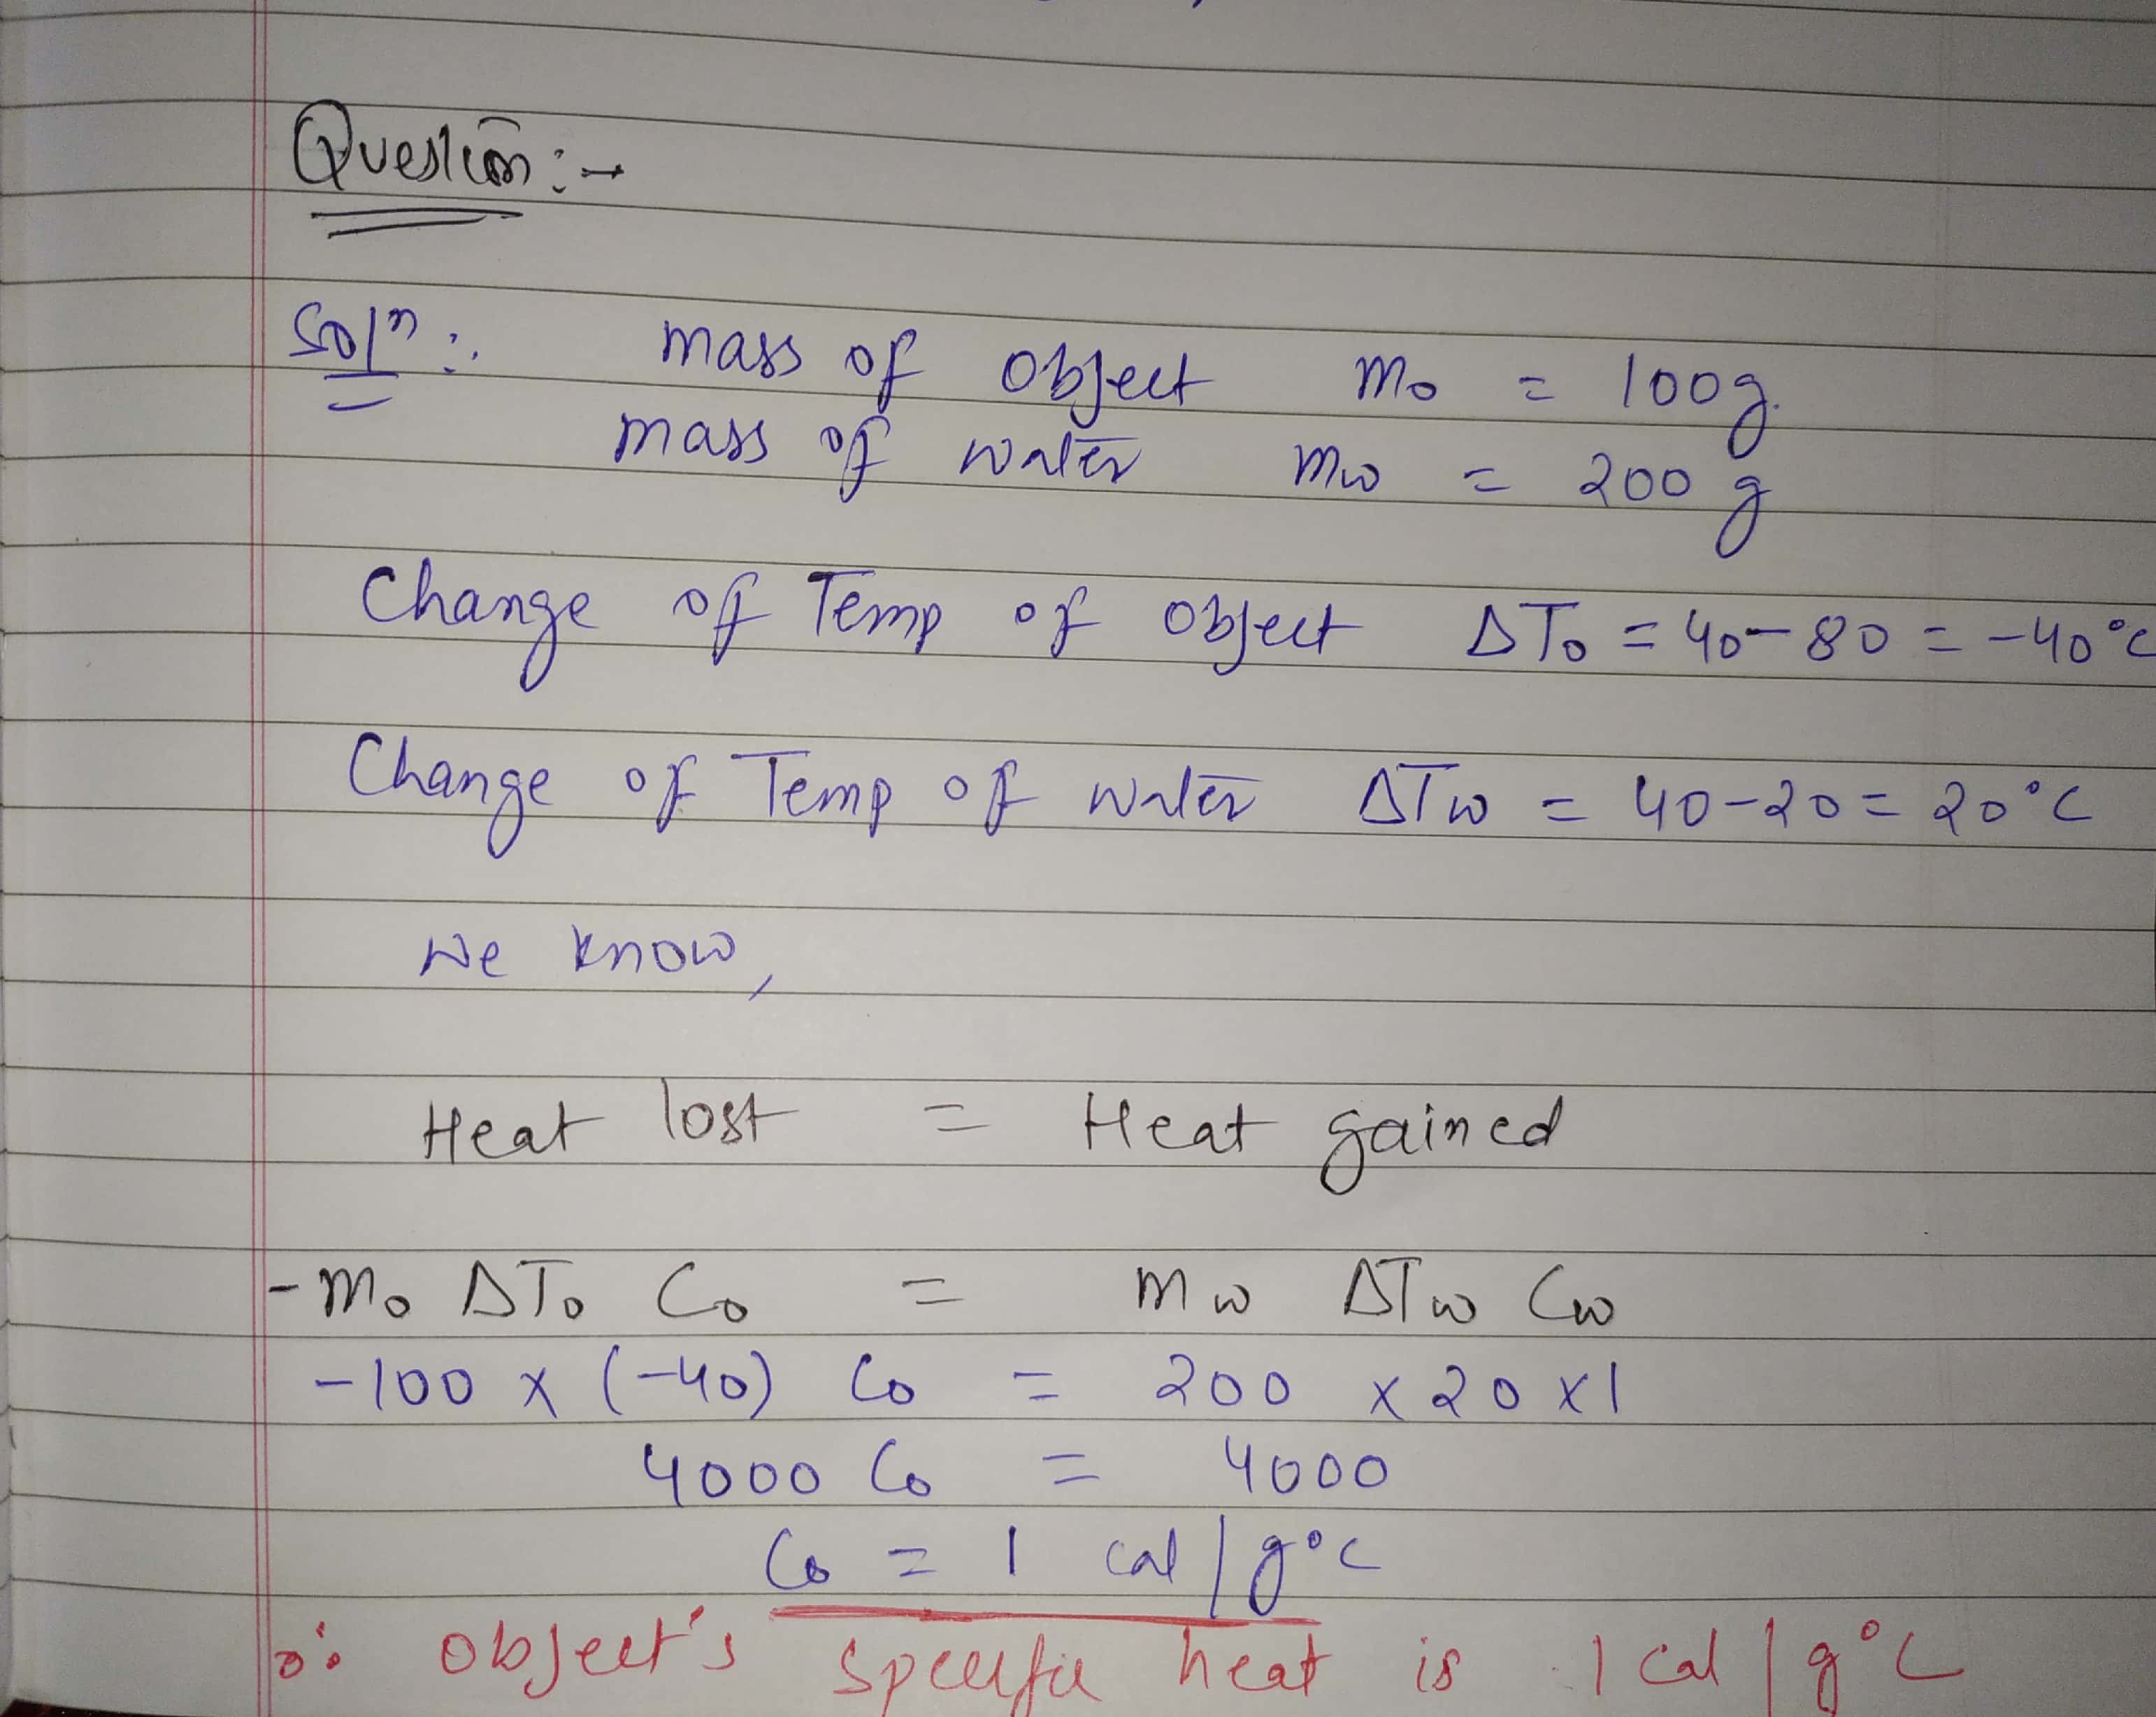 Question :→
Solⁿ :. mass of object mo = 100g.
mass of water mw = 200 g
Change of Temp of object ΔTo = 40-80 = -40°C
Change of Temp of water ΔTw = 40-20 = 20°C
we know,
Heat lost = Heat gained
-mo ΔTo Co = mw ΔTw Cw
-100 x (-40) Co = 200 x 20 x 1
4000 Co = 4000
Co = 1 cal/g°C
∴ object's specific heat is 1 cal/g°C